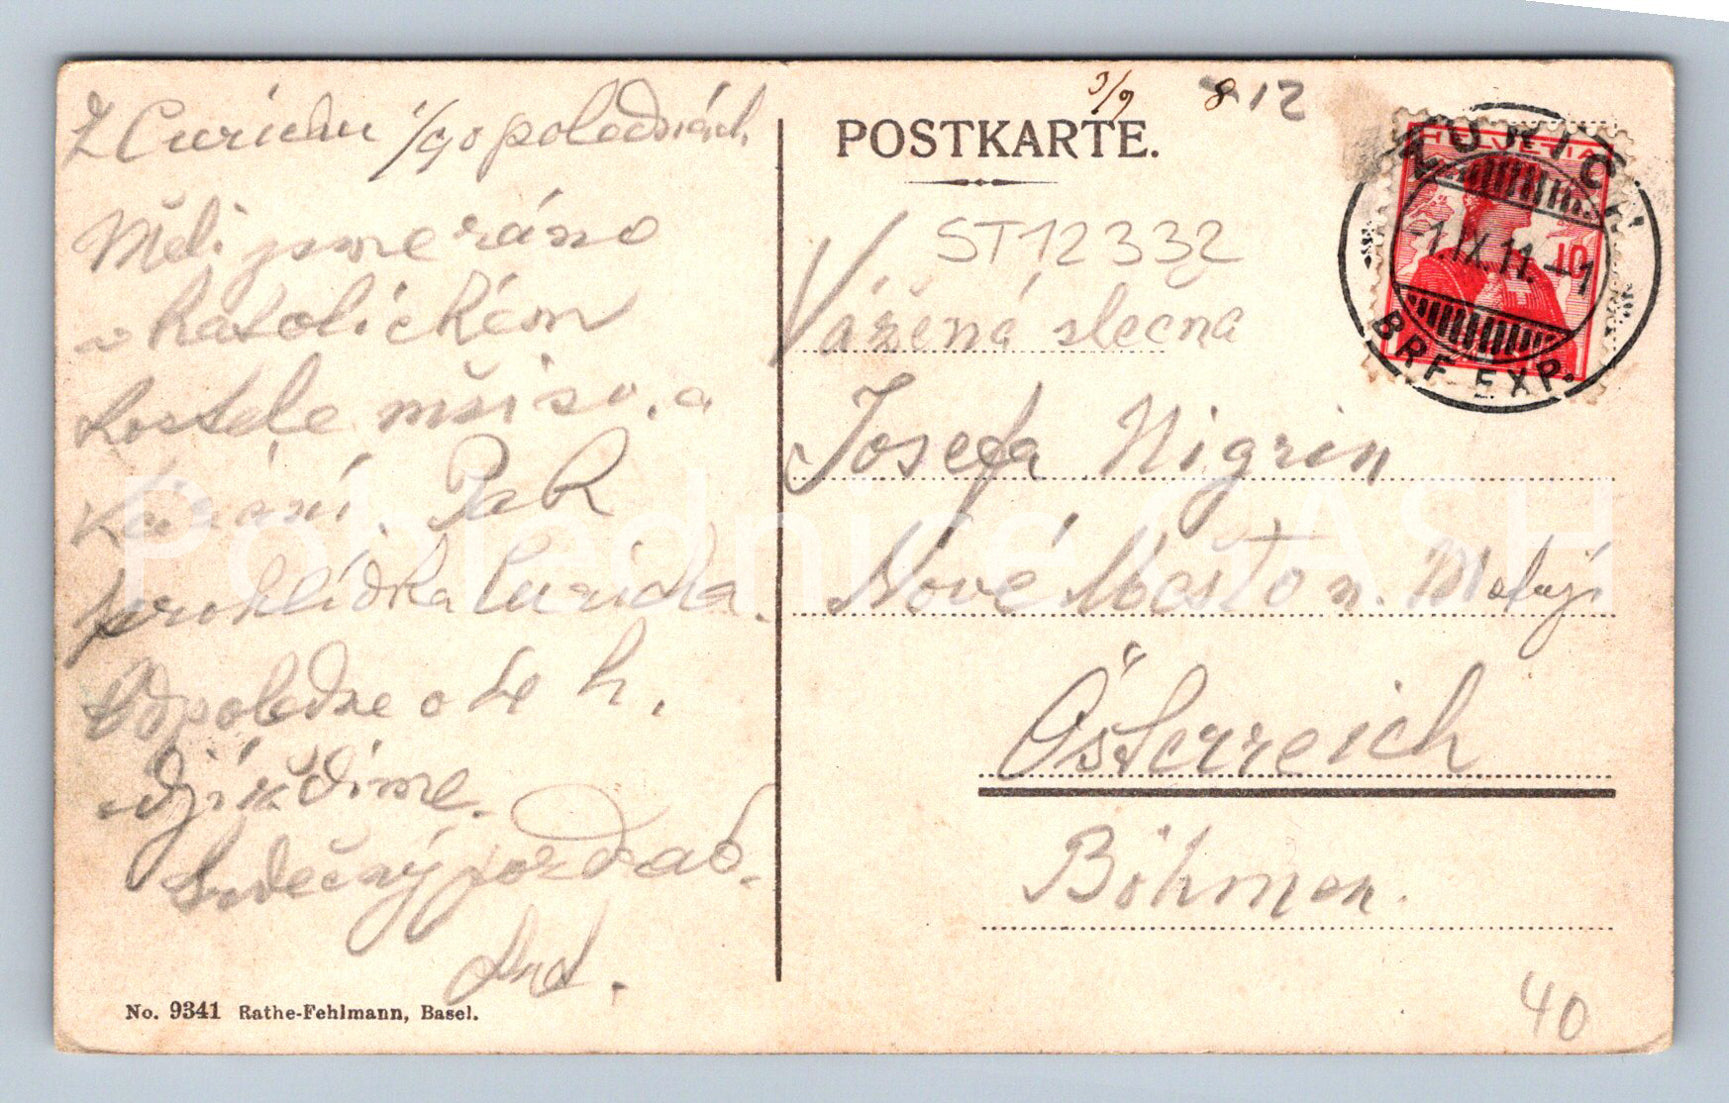 Z Curichu 1/9 o poledních
Měli jsme ráno
v katolickém
kostele mši sv. a
kázání. Pak
prohlídka Curicha.
Odpoledne o 4 h.
odjíždíme.
Srdečný pozdrav.
No. 9341 Rathe-Fehlmann, Basel.
3/9 8 12
POSTKARTE.
ST12332
Vážená slečna
Josefa Nigrin
Nové Město n. Metují
Österreich
Böhmen.
40
HELVETIA
10
ZÜRICH
-1.IX.11.-1
BRF. EXP.
Pohlednice SASH